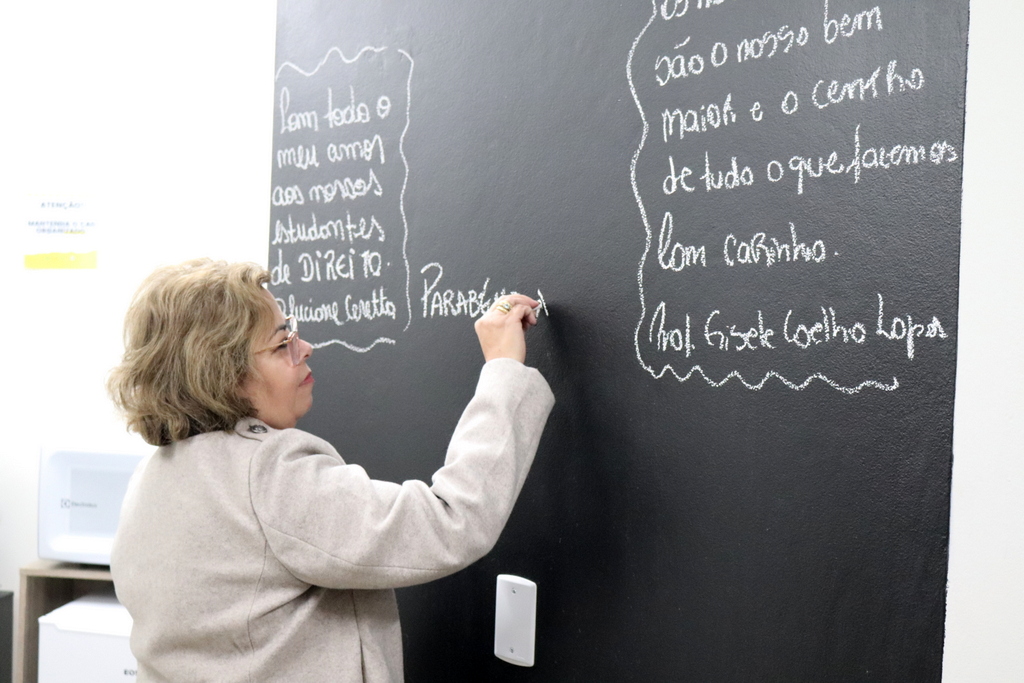 ATENÇÃO!
Com todo o
meu amor
aos nossos
estudantes
de DIREITO.
Luciane Ceretta
PARABÉNS
são o nosso bem
maior e o centro
de tudo o que fazemos
Com carinho.
Prof. Gisele Coelho Lopes
Electrolux